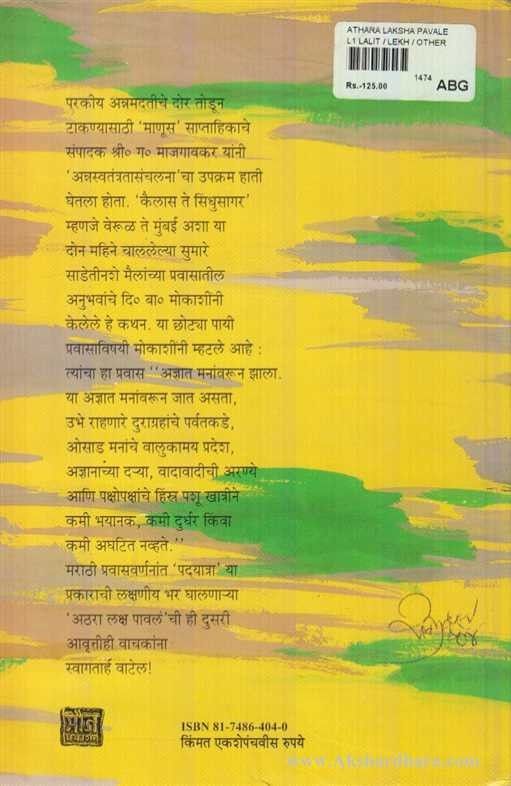 ATHARA LAKSHA PAVALE
L1 LALIT / LEKH / OTHER
1474
Rs.-125.00 ABG
परकीय अन्नमदतीचे दोर तोडून
टाकण्यासाठी 'माणूस' साप्ताहिकाचे
संपादक श्री० ग० माजगावकर यांनी
'अन्नस्वतंत्रतासंचलना'चा उपक्रम हाती
घेतला होता. 'कैलास ते सिंधुसागर'
म्हणजे वेरूळ ते मुंबई अशा या
दोन महिने चाललेल्या सुमारे
साडेतीनशे मैलांच्या प्रवासातील
अनुभवांचे दि० बा० मोकाशींनी
केलेले हे कथन. या छोट्या पायी
प्रवासाविषयी मोकाशींनी म्हटले आहे :
त्यांचा हा प्रवास ''अज्ञात मनांवरून झाला.
या अज्ञात मनांवरून जात असता,
उभे राहणारे दुराग्रहांचे पर्वतकडे,
ओसाड मनांचे वालुकामय प्रदेश,
अज्ञानाच्या दऱ्या, वादावादीची अरण्ये
आणि पक्षोपक्षांचे हिंस्र पशू खात्रीने
कमी भयानक, कमी दुर्धर किंवा
कमी अघटित नव्हते.''
मराठी प्रवासवर्णनांत 'पदयात्रा' या
प्रकाराची लक्षणीय भर घालणाऱ्या
'अठरा लक्ष पावलं'ची ही दुसरी
आवृत्तीही वाचकांना
स्वागतार्ह वाटेल!
मौज
प्रकाशन
ISBN 81-7486-404-0
किंमत एकशेपंचवीस रुपये
www.Akshardhara.com